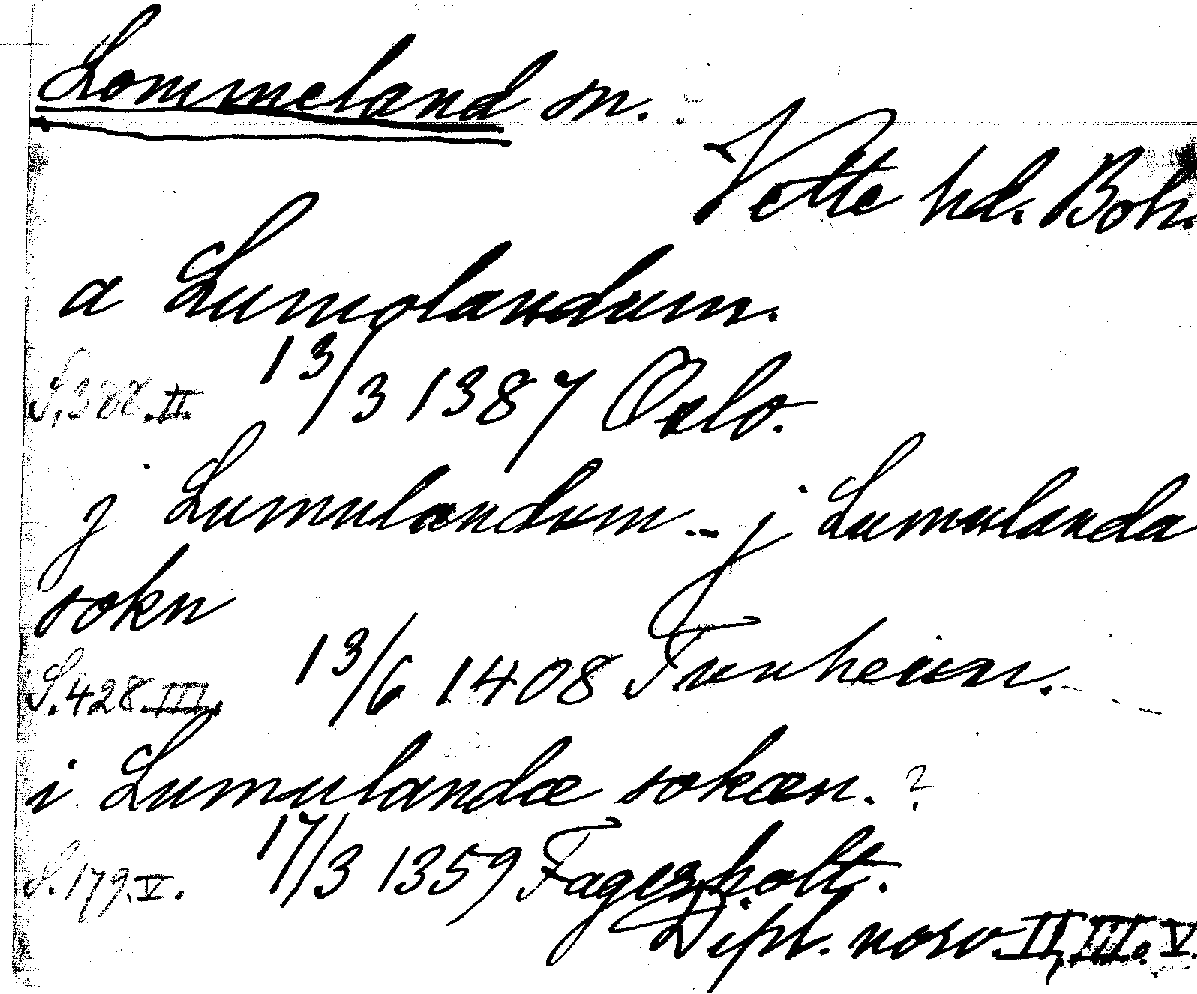 Lommeland sn.
Vette hd. Boh.
a Lumolandum.
S. 388. II. 13/3 1387 Oslo.
j Lumulandum - j Lumulanda
sokn
S. 428. III. 13/6 1408 Tunheim.
i Lumulandæ sokæn. ?
S. 179. V. 17/3 1359 Fagerholt.
Dipl. norv. II, III. V.